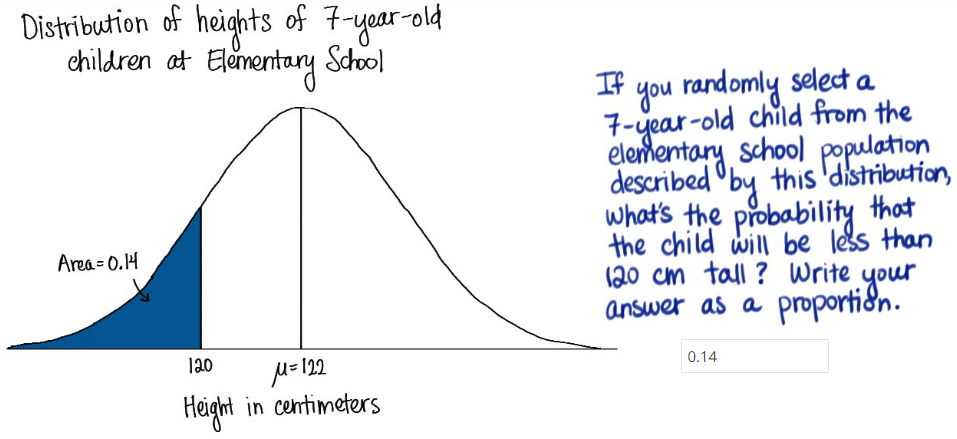 Distribution of heights of 7-year-old
children at Elementary School
Area=0.14
120
μ=122
Height in centimeters
If you randomly select a
7-year-old child from the
elementary school population
described by this distribution,
what's the probability that
the child will be less than
120 cm tall? Write your
answer as a proportion.
0.14